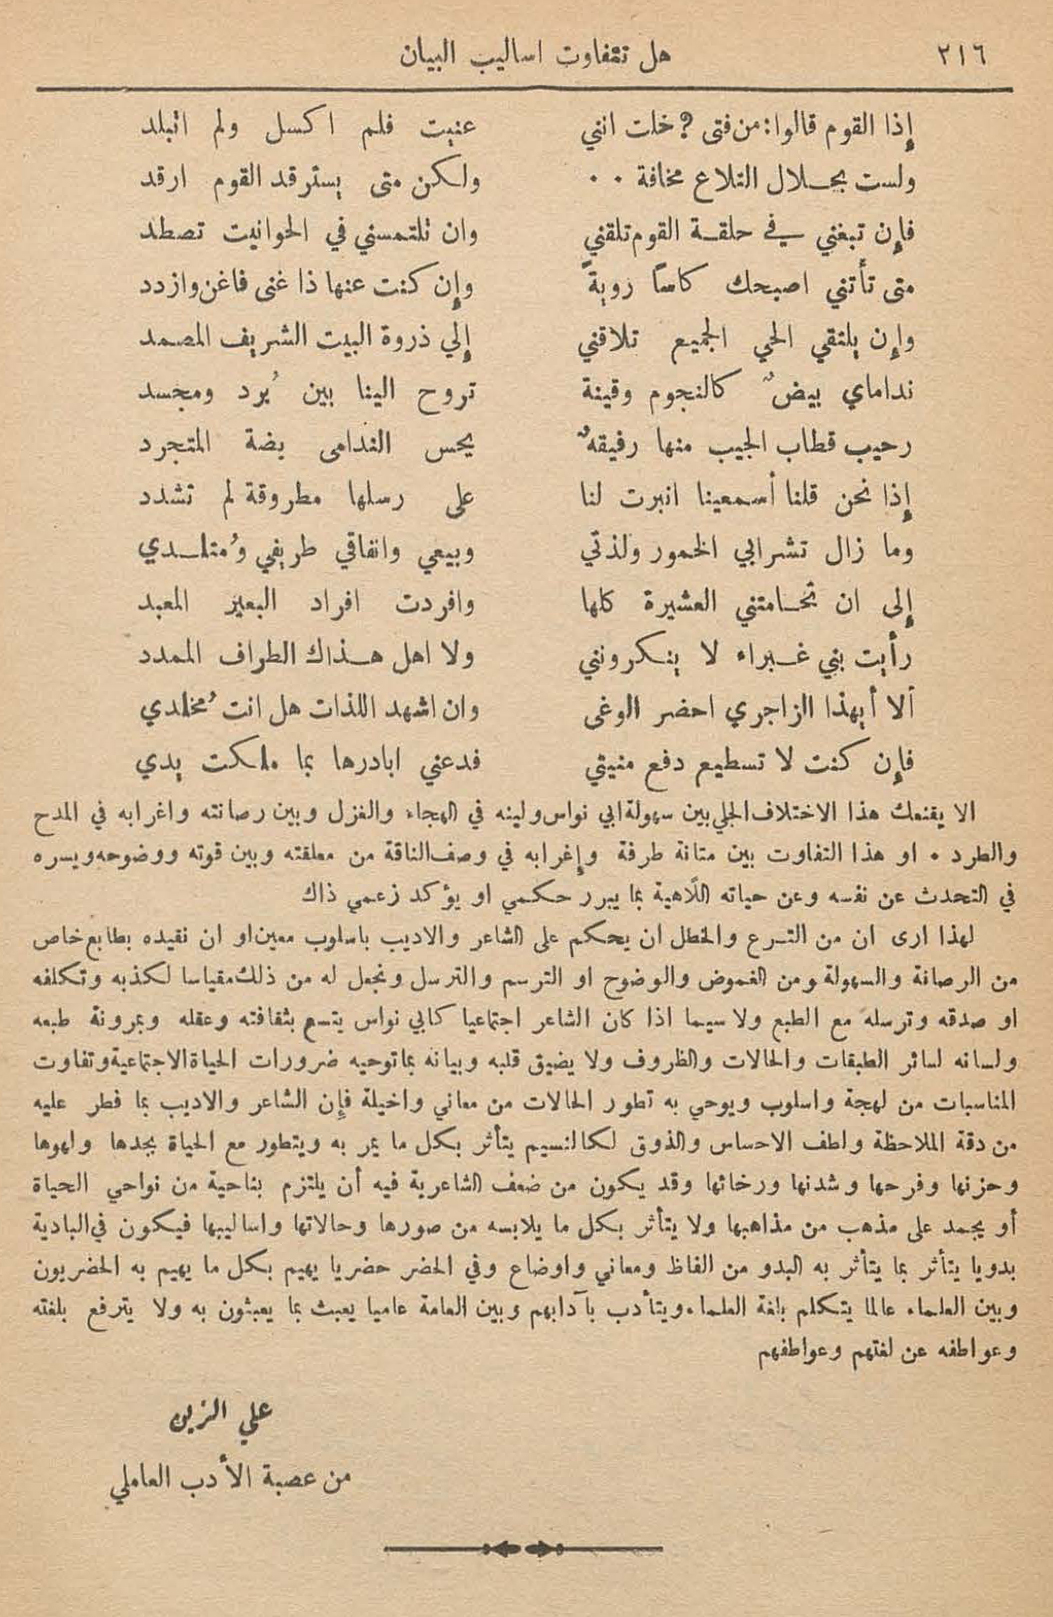 ٢١٦
هل تتفاوت اساليب البيان
إذا القوم قالوا: من فتى؟ خلت انني عنيت فلم اكسل ولم اتبلد
ولست بحلال التلاع مخافة ٠٠ ولكن متى يسترقد القوم ارقد
فإن تبغني في حلقة القوم تلقني وان تلتمسني في الحوانيت تصطد
متى تأتني اصبحك كاسًا رويةً وإن كنت عنها ذا غنى فاغن وازدد
وإن يلتقي الحي الجميع تلاقني إلي ذروة البيت الشريف المصمد
نداماي بيضٌ كالنجوم وقينة تروح الينا بين بُرد ومجسد
رحيب قطاب الجيب منها رفيقهٌ يجس الندامى بضة المتجرد
إذا نحن قلنا أسمعينا انبرت لنا على رسلها مطروقة لم تشدد
وما زال تشرابي الخمور ولذتي وبيعي وانفاقي طريفي ومُتلدي
إلى ان تحامتني العشيرة كلها وافردت افراد البعير المعبد
رأيت بني غبراء لا ينكرونني ولا اهل هذاك الطراف الممدد
ألا أيهذا الزاجري احضر الوغى وان اشهد اللذات هل انت مُخلدي
فإن كنت لا تسطيع دفع منيتي فدعني ابادرها بما ملكت يدي
الا يقنعك هذا الاختلاف الجلي بين سهولة ابي نواس ولينه في الهجاء والغزل وبين رصانته واغرابه في المدح
والطرد ٠ او هذا التفاوت بين متانة طرفة وإغرابه في وصف الناقة من معلقته وبين قوته ووضوحه ويسره
في التحدث عن نفسه وعن حياته اللاهية بما يبرر حكمي او يؤكد زعمي ذاك
لهذا ارى ان من التسرع والخطل ان يحكم على الشاعر والاديب باسلوب معين او ان نقيده بطابع خاص
من الرصانة والسهولة ومن الغموض والوضوح او الترسم والترسل ونجعل له من ذلك مقياسا لكذبه وتكلفه
او صدقه وترسله مع الطبع ولا سيما اذا كان الشاعر اجتماعيا كابي نواس يتسع بثقافته وعقله وبمرونة طبعه
ولسانه لسائر الطبقات والحالات والظروف ولا يضيق قلبه وبيانه بما توحيه ضرورات الحياة الاجتماعية وتفاوت
المناسبات من لهجة واسلوب ويوحي به تطور الحالات من معاني واخيلة فإن الشاعر والاديب بما فطر عليه
من دقة الملاحظة ولطف الاحساس والذوق لكالنسيم يتأثر بكل ما يمر به ويتطور مع الحياة بجدها ولهوها
وحزنها وفرحها وشدنها ورخائها وقد يكون من ضعف الشاعرية فيه أن يلتزم بناحية من نواحي الحياة
أو يجمد على مذهب من مذاهبها ولا يتأثر بكل ما يلابسه من صورها وحالاتها واساليبها فيكون في البادية
بدويا يتأثر بما يتأثر به البدو من الفاظ ومعاني واوضاع وفي الحضر حضريا يهيم بكل ما يهيم به الحضريون
وبين العلماء عالما يتكلم بلغة العلماء ويتأدب بآدابهم وبين العامة عاميا يعبث بما يعبثون به ولا يترفع بلغته
وعواطفه عن لغتهم وعواطفهم
علي الزين
من عصبة الأدب العاملي